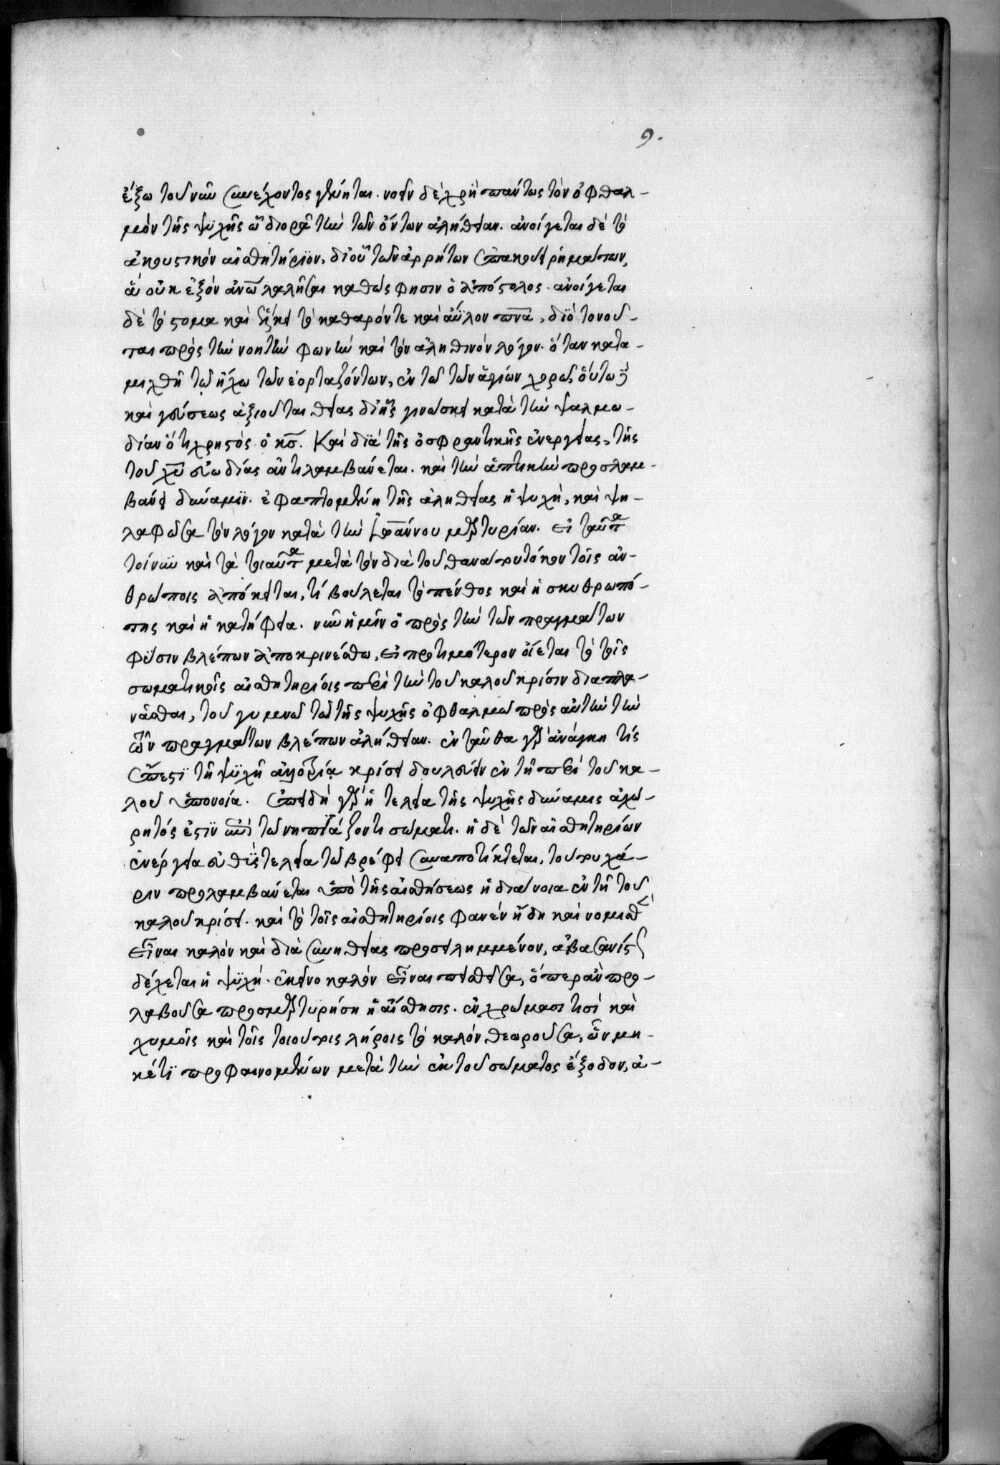 9.
ἔξω τοῦ νῦν συνέχοντος γένηται. νοεῖν δὲ χρὴ πάντως τὸν ὀφθαλ-
μὸν τῆς ψυχῆς ᾧ διορᾷ τὴν τῶν ὄντων ἀλήθειαν. ἀνοίγεται δὲ τὸ
ἀκουστικὸν αἰσθητήριον, δι' οὗ τῶν ἀρρήτων ἐπακούει ῥημάτων,
ἃ οὐκ ἐξὸν ἀνω λαλῆσαι καθώς φησιν ὁ ἀπόστολος. ἀνοίγεται
δὲ τὸ στομα καὶ ἕλκει τὸ καθαρόν τε καὶ ἄϋλον πνα, δι' οὗ τονοῦ-
ται πρὸς τὴν νοητὴν φωνὴν καὶ τὸν ἀληθινὸν λόγον. ὅταν κατα-
μιχθῇ τῷ ἤχῳ τῶν ἑορταζόντων, ἐν τῷ τῶν ἁγίων χορῷ, οὕτω
καὶ γεύσεως ἀξιοῦται θείας δι' ἧς γινώσκει κατὰ τὴν ψαλμω-
δίαν ὅτι χρηστὸς ὁ κς. Καὶ διὰ τῆς ὀσφραντικῆς ἐνεργείας, τῆς
τοῦ χυ εὐωδίας ἀντιλαμβάνεται. καὶ τὴν ἁπτικὴν προσλαμ-
βάνει δύναμιν. ἐφαπτομένη τῆς ἀληθείας ἡ ψυχή, καὶ ψη-
λαφῶσα τὸν λόγον κατὰ τὴν Ἰωάννου μαρτυρίαν. Εἰ ταῦτα
τοίνυν καὶ τὰ τοιαῦτα μετὰ τὸν διὰ τοῦ θανάτου τόκον τοῖς ἀν-
θρώποις ἀπόκειται, τί βούλεται τὸ πένθος καὶ ἡ σκυθρωπό-
της καὶ ἡ κατήφεια. νῦν ἡμῖν ὁ πρὸς τὴν τῶν πραγμάτων
φύσιν βλέπων ἀποκρινέσθω, εἰ προτιμότερον οἴεται τὸ τοῖς
σωματικοῖς αἰσθητηρίοις περὶ τὴν τοῦ καλοῦ κρίσιν διαπλα-
νᾶσθαι, τοῦ γυμνῷ τῷ τῆς ψυχῆς ὀφθαλμῷ πρὸς αὐτὴν τὴν
τῶν πραγμάτων βλέπων ἀλήθειαν. ἐν ταῦθα γὰρ ἀνάγκη τίς
ἔπεστι τῇ ψυχῇ ἀλλοτρίᾳ κρίσει δουλεύειν ἐν τῇ περὶ τοῦ κα-
λοῦ ὑπονοίᾳ. ἐπειδὴ γὰρ ἡ τελεία τῆς ψυχῆς δύναμις ἀχώ-
ρητός ἐστιν ἔτι τῷ νηπιάζοντι σώματι. ἡ δὲ τῶν αἰσθητηρίων
ἐνέργεια εὐθὺς τελεία τῷ βρέφει συναποτίκτεται, τούτου χά-
ριν προλαμβάνεται ὑπὸ τῆς αἰσθήσεως ἡ διάνοια ἐν τῇ τοῦ
καλοῦ κρίσει. καὶ τὸ τοῖς αἰσθητηρίοις φανὲν ἤδη καὶ νομισθὲν
εἶναι καλὸν καὶ διὰ συνηθείας προειλημμένον, ἀβασανίστως
δέχεται ἡ ψυχή. ἐκεῖνο καλὸν εἶναι πεισθεῖσα, ὅπερ ἂν προ-
λαβοῦσα προσμαρτυρήσῃ ἡ αἴσθησις. ἐν χρώμασί τισι καὶ
χυμοῖς καὶ τοῖς τοιούτοις λήροις τὸ καλὸν θεωροῦσα, ὧν μη-
κέτι προφαινομένων μετὰ τὴν ἐκ τοῦ σώματος ἔξοδον, ἀ-